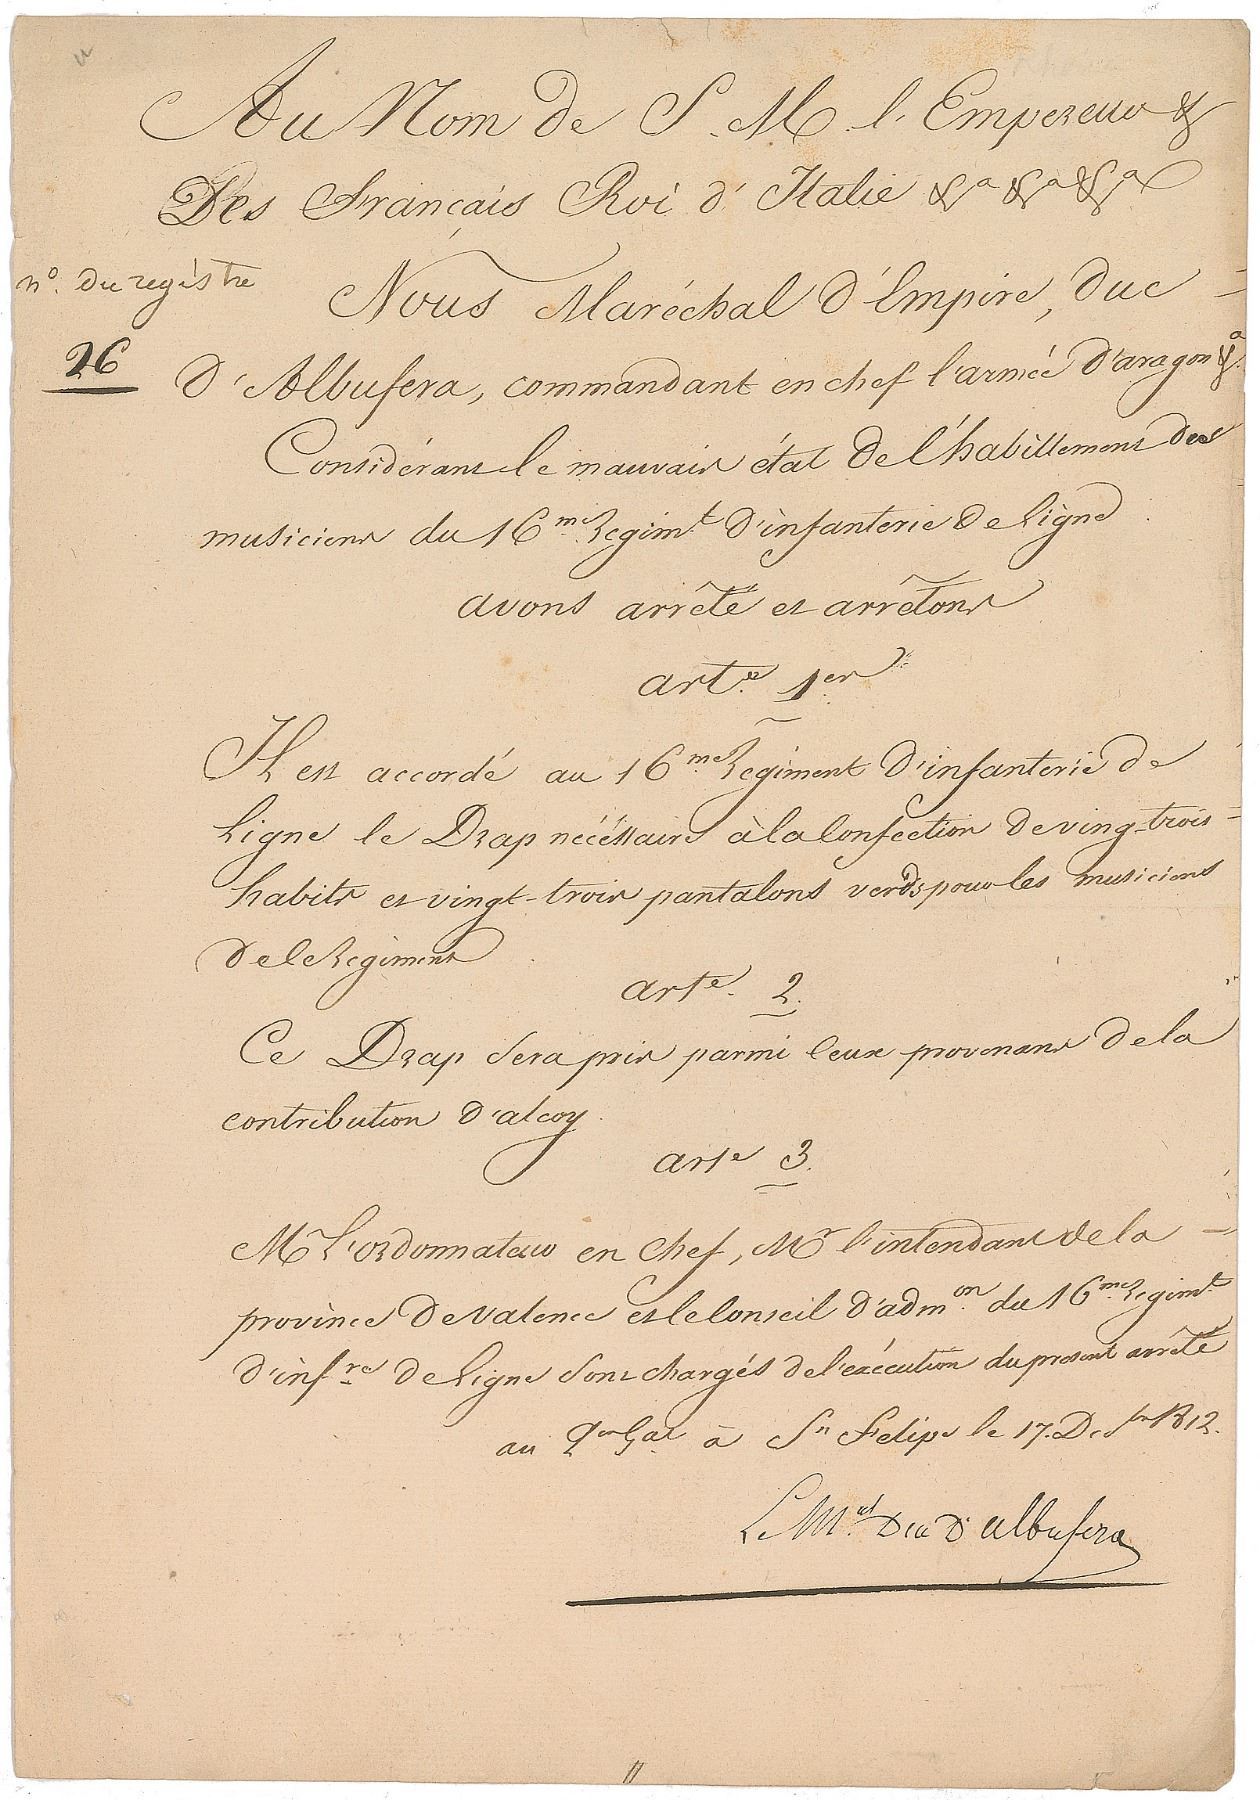 Au Nom de S. M. l'Empereur &
Des Français Roi d'Italie &a &a &a
n.º du registre
26
Nous Maréchal d'Empire, duc
d'Albufera, commandant en chef l'armée d'aragon &a
Considérant le mauvais état de l'habillement des
musiciens du 16.me Regim.t d'infanterie de Ligne
avons arrêté et arrêtons
art.e 1er
Il est accordé au 16.me Regiment d'infanterie de
Ligne le Drap nécéssaire à la Confection de vingt-trois
habits et vingt-trois pantalons verds pour les musiciens
de ce Regiment
art.e 2.
Ce Drap Sera pris parmi Ceux provenans de la
contribution d'alcoy.
art.e 3.
Mr L'ordonnateur en Chef, Mr l'intendant de la
province de Valence et le Conseil d'adm.on du 16.me Regim.t
d'inf.re de Ligne Sont chargés de l'exécution du present arrêté
au Q.er G.al à S.n Felipe le 17. Dec.bre 1812.
Le M.al Duc d'albufera